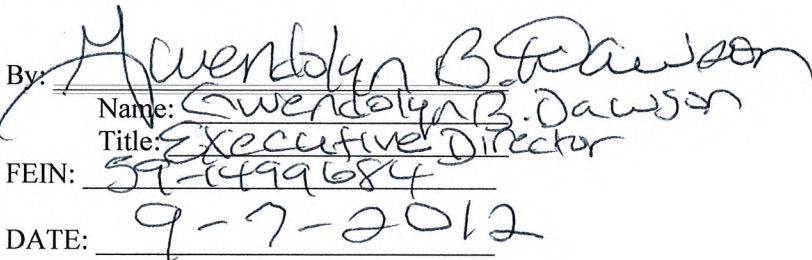 By: Gwendolyn B. Dawson
Name: Gwendolyn B. Dawson
Title: Executive Director
FEIN: 59-1499684
DATE: 9-7-2012